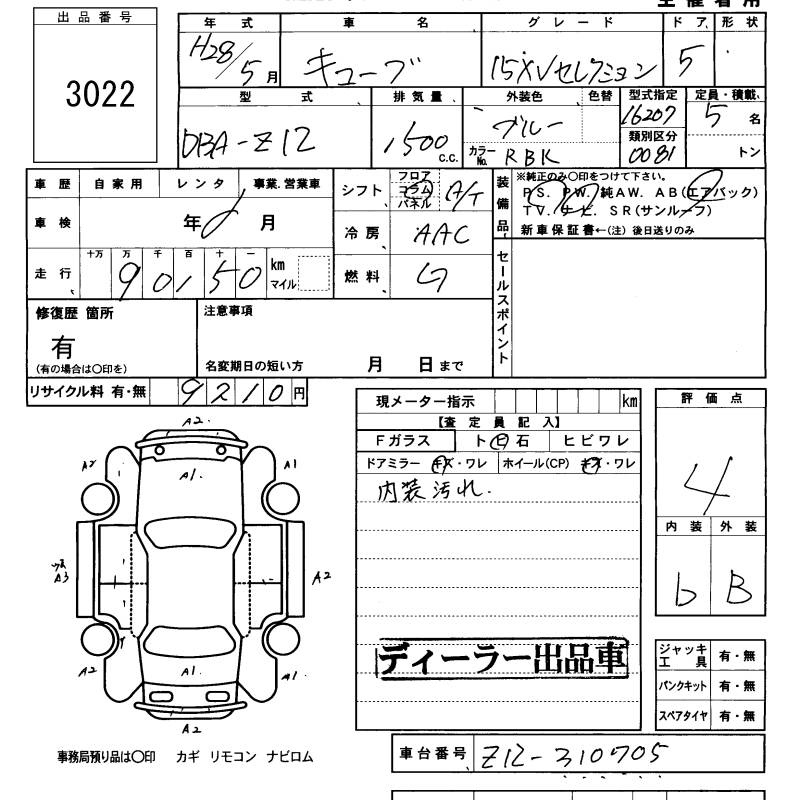 出品番号
3022
年式 車名 グレード ドア 形状
H28/5月 キューブ 15XVセレクション 5
型式 排気量 外装色 色替 型式指定 定員・積載
DBA-Z12 1500 c.c. ブルー 16207 5 名
カラーNo. RBK 類別区分 0081 トン
車歴 自家用 レンタ 事業.営業車
シフト フロア コラム パネル A/T
装備品 ※純正のみ〇印をつけて下さい。
P.S. P.W. 純AW. AB(エアバック)
TV. ナビ. SR(サンルーフ)
新車保証書←(注)後日送りのみ
車検 年 月
冷房 AAC
走行 十万 万 千 百 十 一
90150 km マイル
燃料 G
セールスポイント
修復歴 箇所
有
(有の場合は〇印を)
注意事項
名変期日の短い方 月 日まで
リサイクル料 有・無 9210 円
現メーター指示 km
【査定員記入】
Fガラス ト日石 ヒビワレ
ドアミラー キズ・ワレ ホイール(CP) キズ・ワレ
内装汚れ.
評価点
4
内装 外装
b B
A2
A1
A2
A1
A3
A2
A2
A1
A1
A2
ディーラー出品車
ジャッキ工具 有・無
パンクキット 有・無
スペアタイヤ 有・無
事務局預り品は〇印 カギ リモコン ナビロム
車台番号 Z12-310705